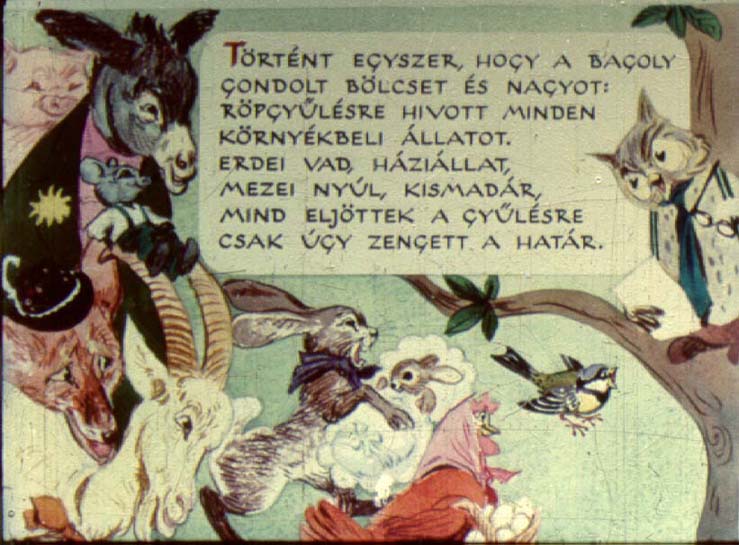 TÖRTÉNT EGYSZER, HOGY A BAGOLY
GONDOLT BÖLCSET ÉS NAGYOT:
RÖPGYŰLÉSRE HIVOTT MINDEN
KÖRNYÉKBELI ÁLLATOT.
ERDEI VAD, HÁZIÁLLAT,
MEZEI NYÚL, KISMADÁR,
MIND ELJÖTTEK A GYŰLÉSRE
CSAK ÚGY ZENGETT A HATÁR.